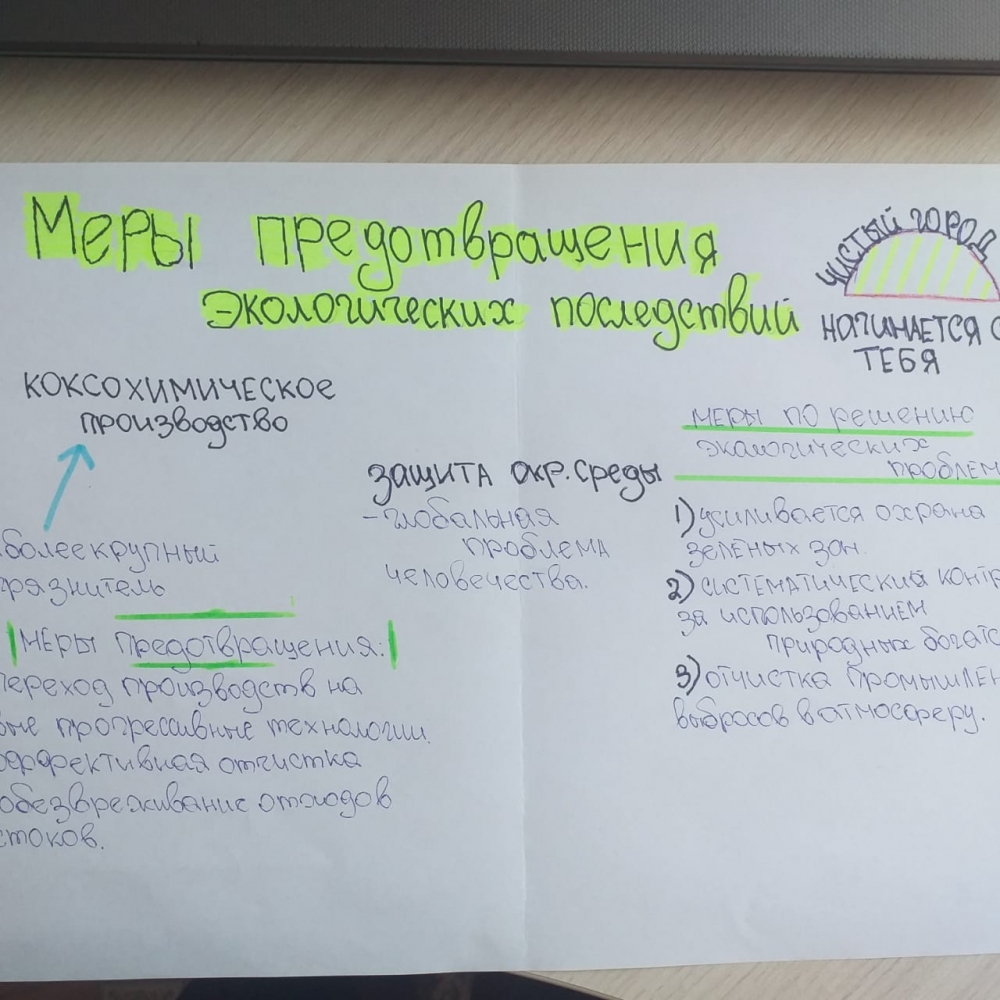 Меры предотвращения
экологических последствий
ЧИСТЫЙ ГОРОД
НАЧИНАЕТСЯ С
ТЕБЯ
КОКСОХИМИЧЕСКОЕ
производство
более крупный
грязнитель
МЕРЫ предотвращения:
переход производств на
вые прогрессивные технологии.
эффективная отчистка
обезвреживание отходов
стоков.
ЗАЩИТА окр. среды
-глобальная
проблема
человечества.
МЕРЫ ПО решению
экалогических
проблем
1) усиливается охрана
зелёных зон.
2) систематический контр
за использованием
природных богатс
3) отчистка промышлен
выбросов в атмосферу.